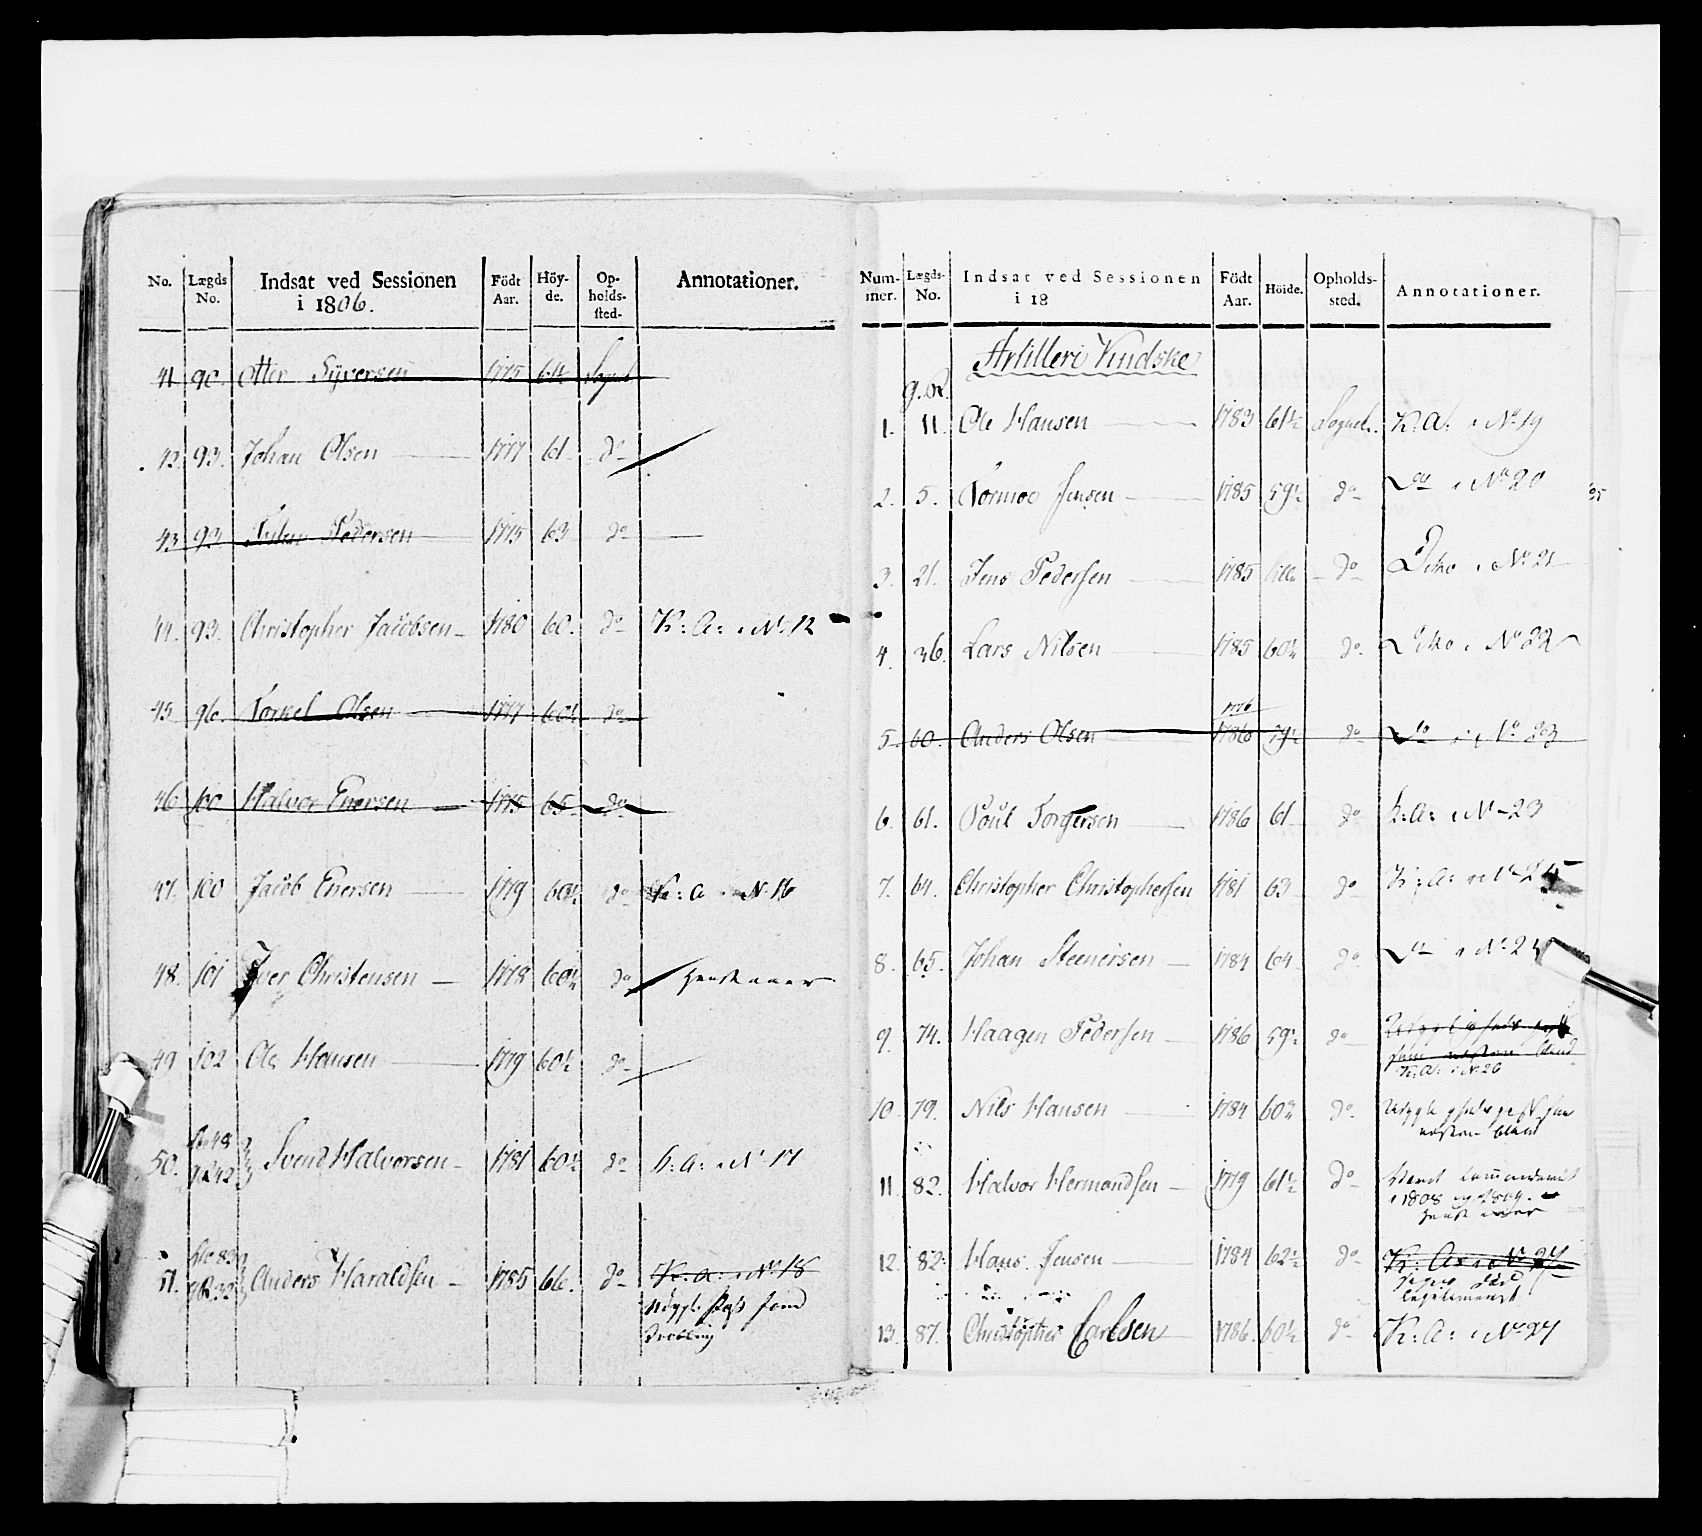 No. Lægds No. Indsat ved Sessionen i 1806. Födt Aar. Höy-de. Op-holds-sted. Annotationer.
41 90. Otter Syversen 1775 64 Sogned
42. 93. Johan Olsen 1777 61 do
43 93 Pedersen 1775 63 do
44. 93. Christopher Jacobsen 1780 60. do K: A: i No. 12
45. 96. Torkel Olsen 1777 60½ do
46 100 Halvor Enersen 1775 65 do
47. 100 Jacob Enersen 1779 60½ do K: A i No 16
48. 101 Iver Christensen 1778 60¾ do
49 102 Ole Hansen 1779 60½ do
50. 48 42 Svend Halvorsen 1781 60½ do K: A: i No 17
51. 83 33 Anders Haraldsen 1785 66. do K: A: i No. 18
Num-mer. Lægds-No. Indsat ved Sessionen i 18 Födt Aar. Höide. Opholds-sted. Annotationer.
Artilleri Kudske
g. R.
1. 11. Ole Hansen 1783 61½ Sogned. K: A: i No 19
2. 5. Tormoe Jensen 1785 59½ do Do i No 20
3. 21. Jens Pedersen 1785 do Dito i No 21
4. 36. Lars Nilsen 1785 60¾ do Dito i No 22
1776
5. 60. Anders Olsen 1786 do Do i No 23
6. 61. Poul Torgersen 1786 61 do K: A: i No 23
7. 64. Christopher Christophersen 1781 63 do K: A: i No 24
8. 65. Johan Steenersen 1784 64 do Do i No 25
9. 74. Haagen Pedersen 1786 59½ do
K: A: i No 26
10. 79. Nils Hansen 1784 60¾ do
11. 82. Halvor Hermandsen 1779 61½ do
i 1808 og 1809.
12. 82. Hans Jensen 1784 62½ do K: A: i No 27
13. 87. Christopher Carlsen 1786. 60½ do K: A: i No 27